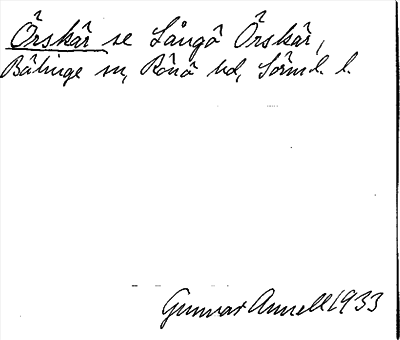 Örskär se Långö Örskär,
Bälinge sn, Rönö hd, Sörml. l.
Gunnar Annell 1933